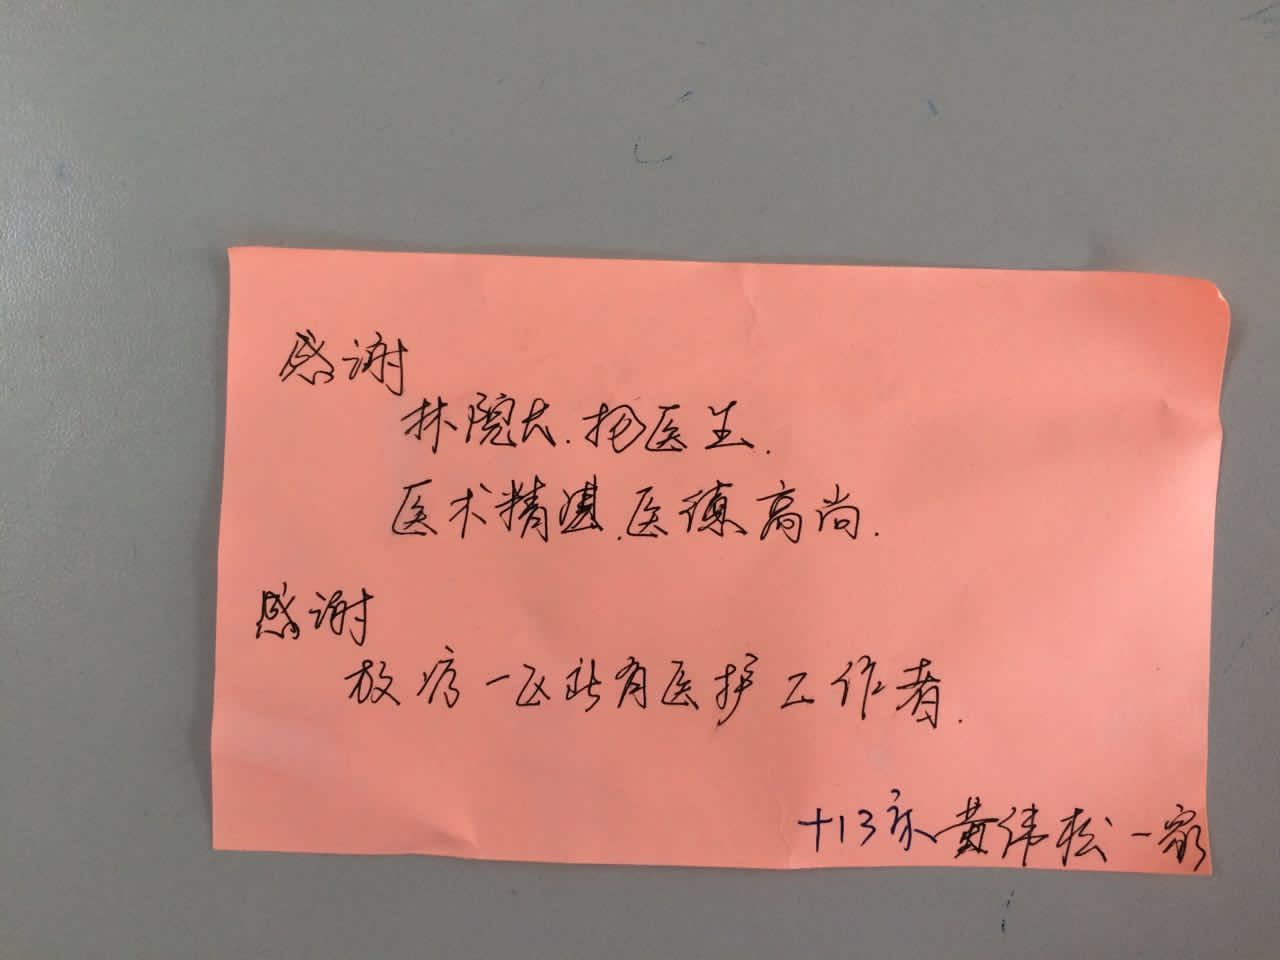 感谢
林院长.杨医生.
医术精湛.医德高尚.
感谢
放疗一区所有医护工作者.
+13床黄伟松一家